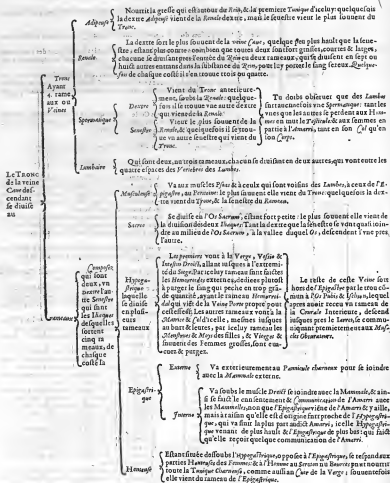 Nourrit la gresse qui est autour du Rein, & la premiere Tunique d'iceluy: quelquefois
Adipeuse
la dextre Adipeuse vient de la Renale dextre, mais le senestre vient le plus souvent du
Tronc.
La dextre sort le plus souvent de la veine Cave, quelque peu plus hault que la senestre
Renale
chacune se divisant pres l'entrée du Rein en deux rameaux, qui se divisent en sept ou
huict autres entrant dans la substance du Rein, pour y porter le sang sereux. Quelquefois
de chasque costé il s'en trouve trois ou quatre.
Tronc
Ayant
4. rameaux
ou
Veines
Spermatique
Dextre
Vient du Tronc anterieurement,
soubs la Renale: quelquefois
il se trouve une autre dextre
qui vient de la Renale.
Senestre
Vient le plus souvent de la
Renale, & quelquefois il se trouve
une autre senestre qui vient du
Tronc.
Tu doibs observer que des Lombes
sort aucunefois une Spermatique: tant les
unes que les autres se perdent aux Hommes
en tout le Testicule & aux femmes en
partie à l'Amarri, tant en son Col qu'en
son Corps.
Lumbaire
Qui sont deux, ou trois rameaux, chacun se divisant en deux autres, qui vont entre les
quatre espaces des Vertebres des Lumbes.
Le TRONC
de la veine
Cave descendant
se divise
au
Rameaux
Composez
qui sont
deux, un
Dextre l'autre
Senestre
qui sont
les Iliaques
desquelles
sortent
cinq rameaux,
de
chaque
costé la
Musculeuse
Va aux muscles Psoas & à ceux qui sont voisins des Lumbes, à ceux de l'Epigastre,
au Peritoine: le plus souvent elle vient du Tronc: quelquefois la dextre
vient du Tronc, & la senestre du Rameau.
Sacree
Se divise en l'Os Sacrum, estant fort petite: le plus souvent elle vient de
la division des deux Iliaques: Tant la dextre que la senestre se vont quasi joindre
au milieu de l'Os Sacrum, à la vallee duquel descendent l'une pres
l'autre.
Hypogastrique
laquelle
se divise
en plusieurs
rameaux
Les premiers vont à la Verge, Vessie &
Intestin Droict, allant jusques à l'extremité
du Siege. Par iceluy rameau sont faictes
les Hemorroides externes, dediees plustost
à purger le sang qui peche en trop grande
quantité, ayant le rameau Hemorroidal
qui vient de la Veine Porte propre pour
Les autres rameaux vont à la
Matrice & Col d'icelle, mesmes jusques
au bout & leures, par iceluy rameau les
Menstrues & Moys des filles, & Vierges &
souvent des Femmes grosses, sont
& purgez.
Le reste de ceste Veine sort
hors de l'Epigastre par le trou commun
à l'Os Pubis & Ischion, lequel
apres avoir receu un rameau de
la Crurale Interieure, descend
jusques pres le Iarret, se communiquant
premierement aux Muscles
Obturateurs.
Epigastrique
Externe
Va exterieurement au Pannicule charneux pour se joindre
avec la Mammale externe.
Interne
Va soubs le muscle Droict se joindre avec la Mammale, & ainsi
se faict le consentement & Communication de l'Amarri avec
les Mammelles, non que l'Epigastrique viéne de l'Amarri & y aille,
mais à raison qu'elle est d'origine fort proche de l'Hypogastrique,
qui va finir la plus part audict Amarri; icelle Hypogastrique
venant de plus hault & l'Epigastrique de plus bas: qui faict
qu'elle reçoit quelque communication de l'Amarri.
Honteuse
Estant située dessoubs l'Hypogastrique, opposée à l'Epigastrique, se respend aux
parties Honteuses des Femmes: & à l'Homme au Scrotum ou Bourses pour nourrir
toute la Tunique Charneuse, comme aussi au Cuir de la Verge: souventefois
elle vient du rameau de l'Epigastrique.